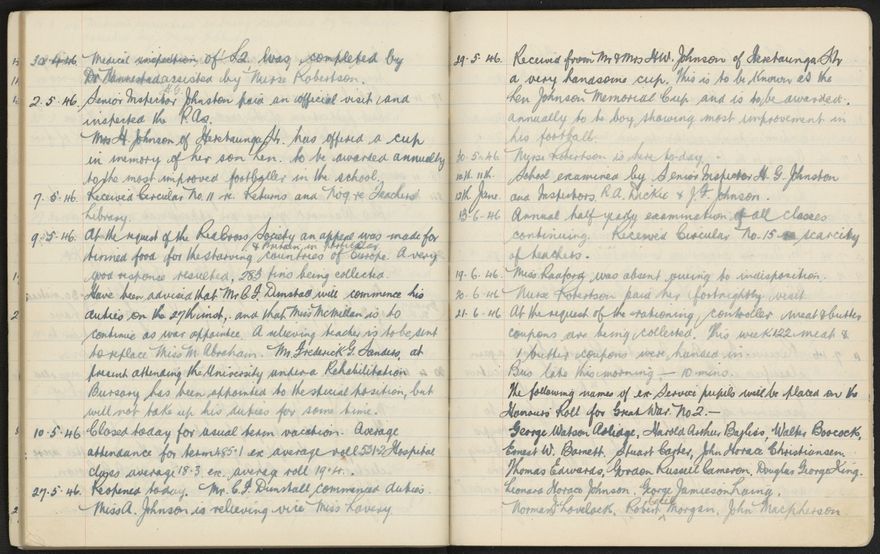 30.4.46. Medical inspection of S2 was completed by
Dr assisted by Nurse Robertson.
2.5.46. Senior Inspector Johnston paid an official visit and
inspected the P.As.
Mrs H. Johnson of Heretaunga St. has offered a cup
in memory of her son Len. to be awarded annually
to the most improved footballer in the school.
7.5.46. Received Circular No. 11 re Returns and No 9 re Teachers
Library.
9.5.46. At the request of the Red Cross Society an appeal was made for
tinned food for the starving countries of Europe. A very
& Britain in particular
good response resulted, 283 tins being collected.
Have been advised that Mr C. F. Dunstall will commence his
duties on the 27th inst., and that Miss McMillan is to
continue as war appointee. A relieving teacher is to be sent
to replace Miss M. Abraham. Mr. Frederick G. Sanders, at
present attending the University under a Rehabilitation
Bursary has been appointed to the special position, but
will not take up his duties for some time.
10.5.46 Closed today for usual term vacation. Average
attendance for term 485.1 ex average roll 531.2 Hospital
class average 18.3 ex. average roll 19.
27.5.46. Reopened today. Mr. C. F. Dunstall commenced duties.
Miss A. Johnson is relieving vice Miss Lavery
29.5.46. Received from Mr & Mrs H.W. Johnson of Heretaunga Str
a very handsome cup. This is to be known as the
Len Johnson Memorial Cup and is to be awarded.
annually to to boy showing most improvement in
his football.
30.5.46 Nurse Robertson is here today.
10th. 11th. School examined by Senior Inspector H. G. Johnston
12th June. and Inspectors R.A. Dickie & J. F. Johnson.
13-6-46 Annual half yearly examination of all classes
continuing. Received Circular No. 15 scarcity
of teachers.
19.6.46. Miss Reaford was absent owing to indisposition.
20.6.46 Nurse Robertson paid her fortnightly visit.
21.6.46 At the request of the rationing controller meat & butter
coupons are being collected. This week 122 meat &
1 butter coupons were handed in.
Bus late this morning — 10 mins.
The following names of ex Service pupils will be placed on the
Honours Roll for Great War. No 2. —
George Watson Aslidge, Harold Arthur Bayliss, Walter Boocock,
Ernest W. Barnett. Stuart Carter, John Horace Christiansen.
Thomas Edwards, Gordon Russell Cameron. Douglas George King.
Leonard Horace Johnson. George Jamieson Laing.
Norman Lovelock, Robert Morgan, John Macpherson